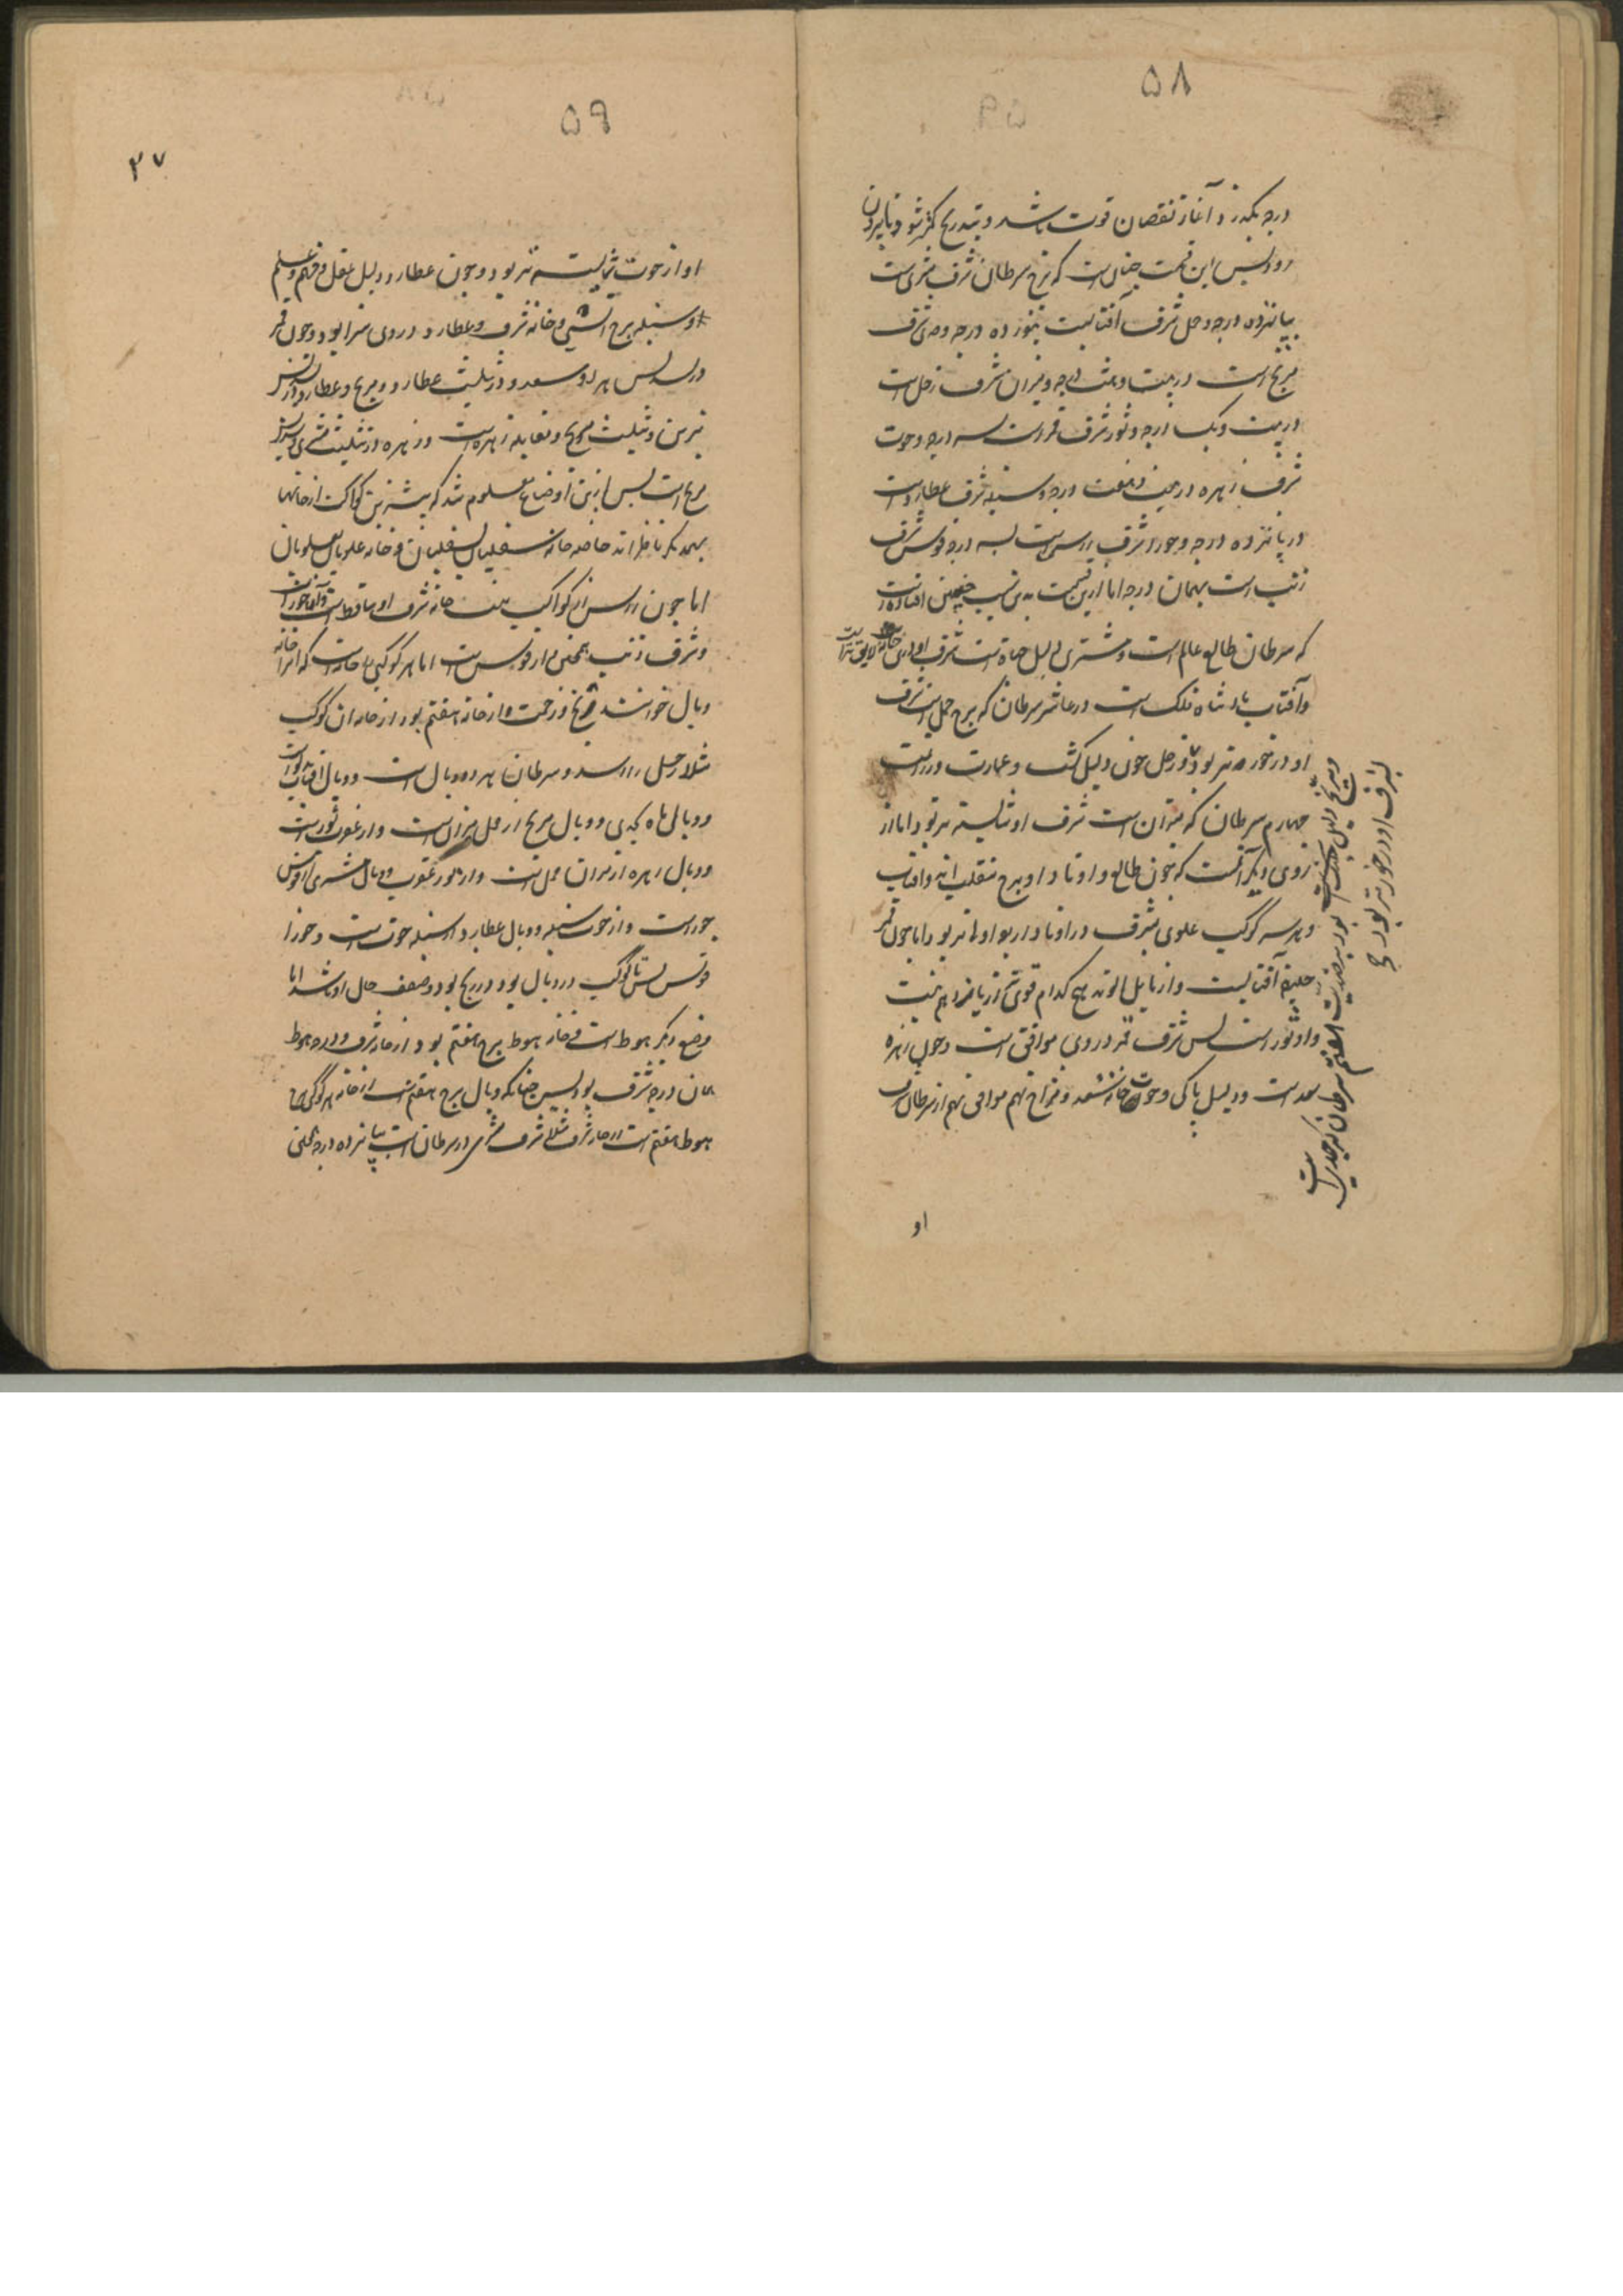 ۵۸
درجه بگذرد آغاز نقصان قوت باشد و بتدریج کمتر شود تا بیرون
رود پس این قسمت چنان است که برج سرطان شرف مشتری است
بپانزده درجه و حمل شرف آفتابست بنوزده درجه و جدی شرف
مریخ است در بیست و هشت درجه و میزان شرف زحل است
در بیست و یک درجه و ثور شرف قمر است بسه درجه و حوت
شرف زهره در بیست و هفت درجه و سنبله شرف عطارد است
در پانزده درجه و جوزا شرف راس است بسه درجه و قوس شرف
ذنب است بهمان درجه اما این قسمت بدین سبب چنین افتاده است
که سرطان طالع عالم است و مشتری دلیل حیاة است شرف او در این خانه لایق تر است
و آفتاب پادشاه فلک است در عاشر سرطان که برج حمل است شرف
او در خورد تر بود و زحل چون دلیل کشت و عمارت و زراعت است
چهارم سرطان که میزان است شرف او شایسته تر بود اما از
روی دیگر آنست که چون طالع و اوتاد او برج منقلب اند و آفتاب
و هر سه کوکب علوی بشرف در اوتاد او بود اولی تر بود اما چون قمر
خلیفه آفتابست و از مایل الوتد هیچ کدام قوی تر از یازدهم نیست
و او ثور است پس شرف قمر در وی موافق است و چون زهره
سعد است و دلیل پاکی و حوت خانه سعد و مزاج نهم موافق نهم از سرطان شرف
و مریخ دلیل جنگ است بود بر ضدیت هفتم سرطان که جدیست
شرف او در خورتر بود صح
او
۵۹
۲۷
او از حوت شایسته تر بود و چون عطارد دلیل عقل و فهم و علم
و سنبله برج انسی و خانه شرف عطارد در وی سزا بود و چون قمر
در تسدیس هر دو سعد و در تثلیث عطارد و مریخ و عطارد در تسدیس
نیرین و تثلیث مریخ و مقابله زهره است و زهره در تثلیث مشتری و تسدیس
مریخ است پس ازین اوضاع معلوم شد که بیشترین کواکب از خانها
بهمدیگر ناظراند خاصه خانه سفلیان بسفلیان و خانه علویان بعلویان
اما چون راس از کواکب نیست خانه شرف او ساقط است و آن جوزا است
و شرف ذنب همچنین از قوس است اما هر کوکبی را خانه است که آنرا خانه
وبال خوانند و رنج و زحمت و آن خانه هفتم بود از خانه آن کوکب
مثلا زحل را اسد و سرطان هر دو وبال است و وبال آفتاب دلو است
و وبال ماه جدی و وبال مریخ از حمل میزان است و از عقرب ثور است
و وبال زهره از میزان حمل است و از ثور عقرب و وبال مشتری از قوس
جوزاست و از حوت سنبله و وبال عطارد از سنبله حوت است و جوزا
قوس پس تا کوکب در وبال بود در رنج بود و ضعف حال او باشد اما
وضع دیگر هبوط است و خانه هبوط برج هفتم بود از خانه شرف و درجه هبوط
همان درجه شرف بود پس چنانکه وبال برج هفتم است از خانه هر کوکبی
هبوط هفتم است از خانه شرف مثلا شرف مشتری در سرطان است بپانزده درجه یعنی